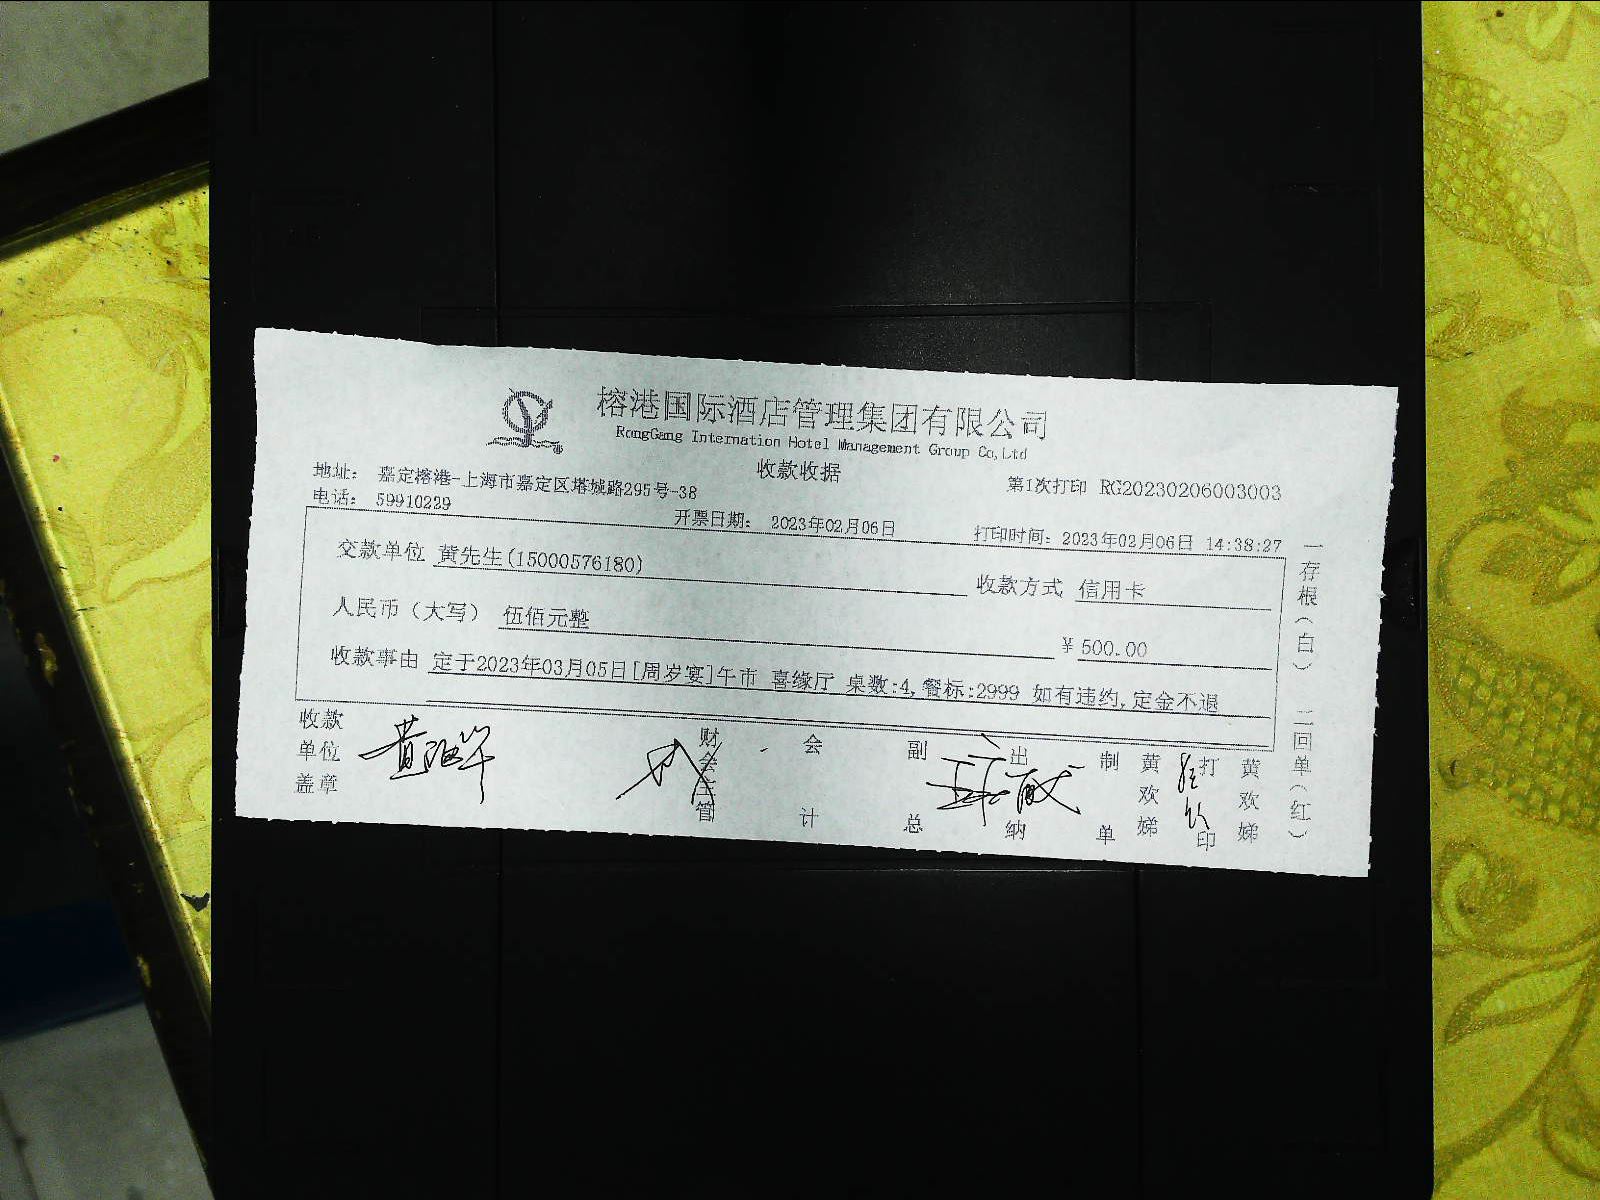 榕港国际酒店管理集团有限公司
RongGang Internation Hotel Management Group Co,Ltd
收款收据
地址： 嘉定榕港-上海市嘉定区塔城路295号-38
第1次打印 RG20230206003003
电话： 59910229
开票日期： 2023年02月06日
打印时间：2023年02月06日 14:38:27
交款单位 黄先生(15000576180)
收款方式 信用卡
人民币（大写） 伍佰元整
￥500.00
收款事由 定于2023年03月05日[周岁宴]午市 喜缘厅 桌数:4,餐标:2999 如有违约,定金不退
一存根（白） 二回单（红）
收款单位盖章
财会主管
会计
副总
出纳
制单
黄欢娣
打印
黄欢娣